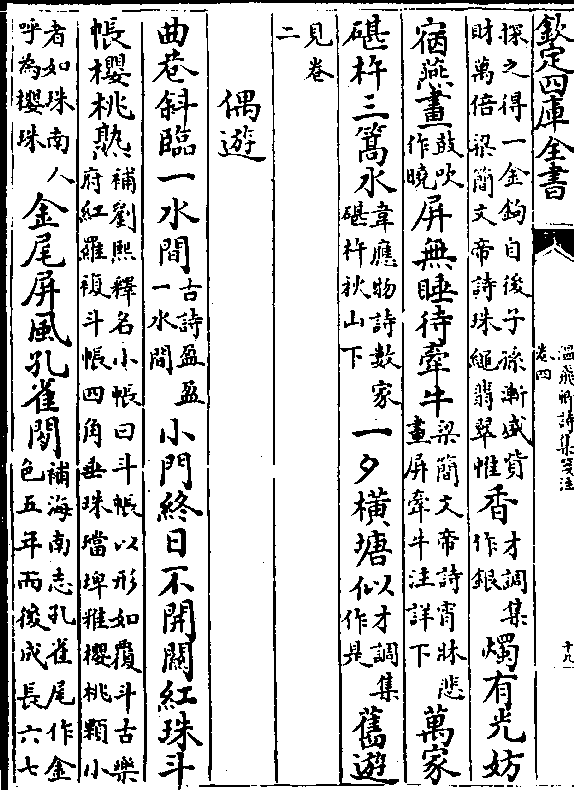 欽定四庫全書
溫飛卿詩集箋注
卷四
十九
探之得一金鉤自後子孫漸盛貲
財萬倍梁簡文帝詩珠繩翡翠帷香才調集
作銀燭有光妨
宿燕畫鼓吹
作曉屏無睡待牽牛梁簡文帝詩宵牀悲
畫屏牽牛注詳下萬家
碪杵三篙水韋應物詩數家
碪杵秋山下一夕橫塘似才調集
作是舊遊
見卷
二
偶遊
曲巷斜臨一水間古詩盈盈
一水間小門終日不開關紅珠斗
帳櫻桃熟補劉熙釋名小帳曰斗帳以形如覆斗古樂
府紅羅複斗帳四角垂珠璫埤雅櫻桃顆小
者如珠南人
呼為櫻珠金尾屏風孔雀閒補海南志孔雀尾作金
色五年而後成長六七